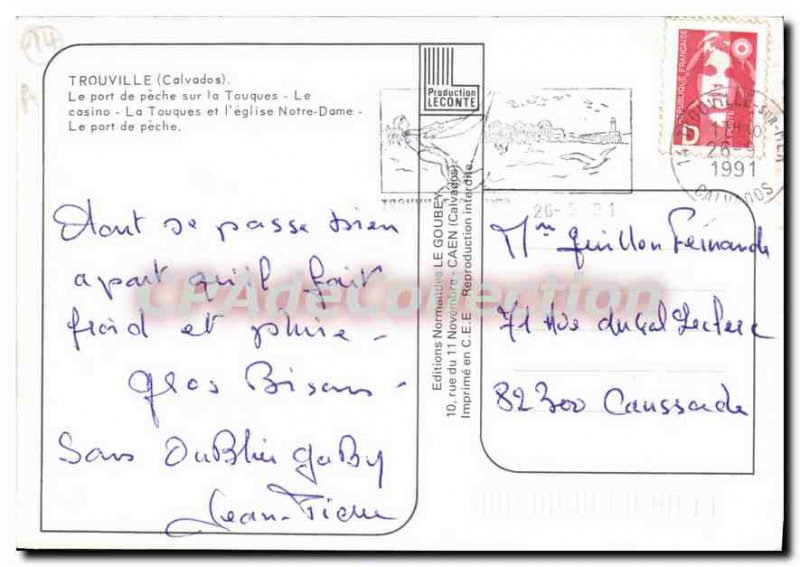 14
TROUVILLE (Calvados).
Le port de pèche sur la Touques - Le
casino - La Touques et l'église Notre-Dame -
Le port de pèche.
Production
LECONTE
REPUBLIQUE FRANÇAISE
D
14 TROUVILLE-SUR-MER
26-
1991
CALVADOS
TROUVILLE
26- 91
Editions Normandes LE GOUBEY
10, rue du 11 Novembre - CAEN (Calvados)
Imprimé en C.E.E. - Reproduction interdite.
CPAdeCollection
tout se passe bien
a part qu'il fait
froid et pluie -
gros Bisous -
Sans Oublier gaby
Jean-Pierre
Mme Guillon Fernande
71 Rue du Gal Leclerc
82300 Caussade